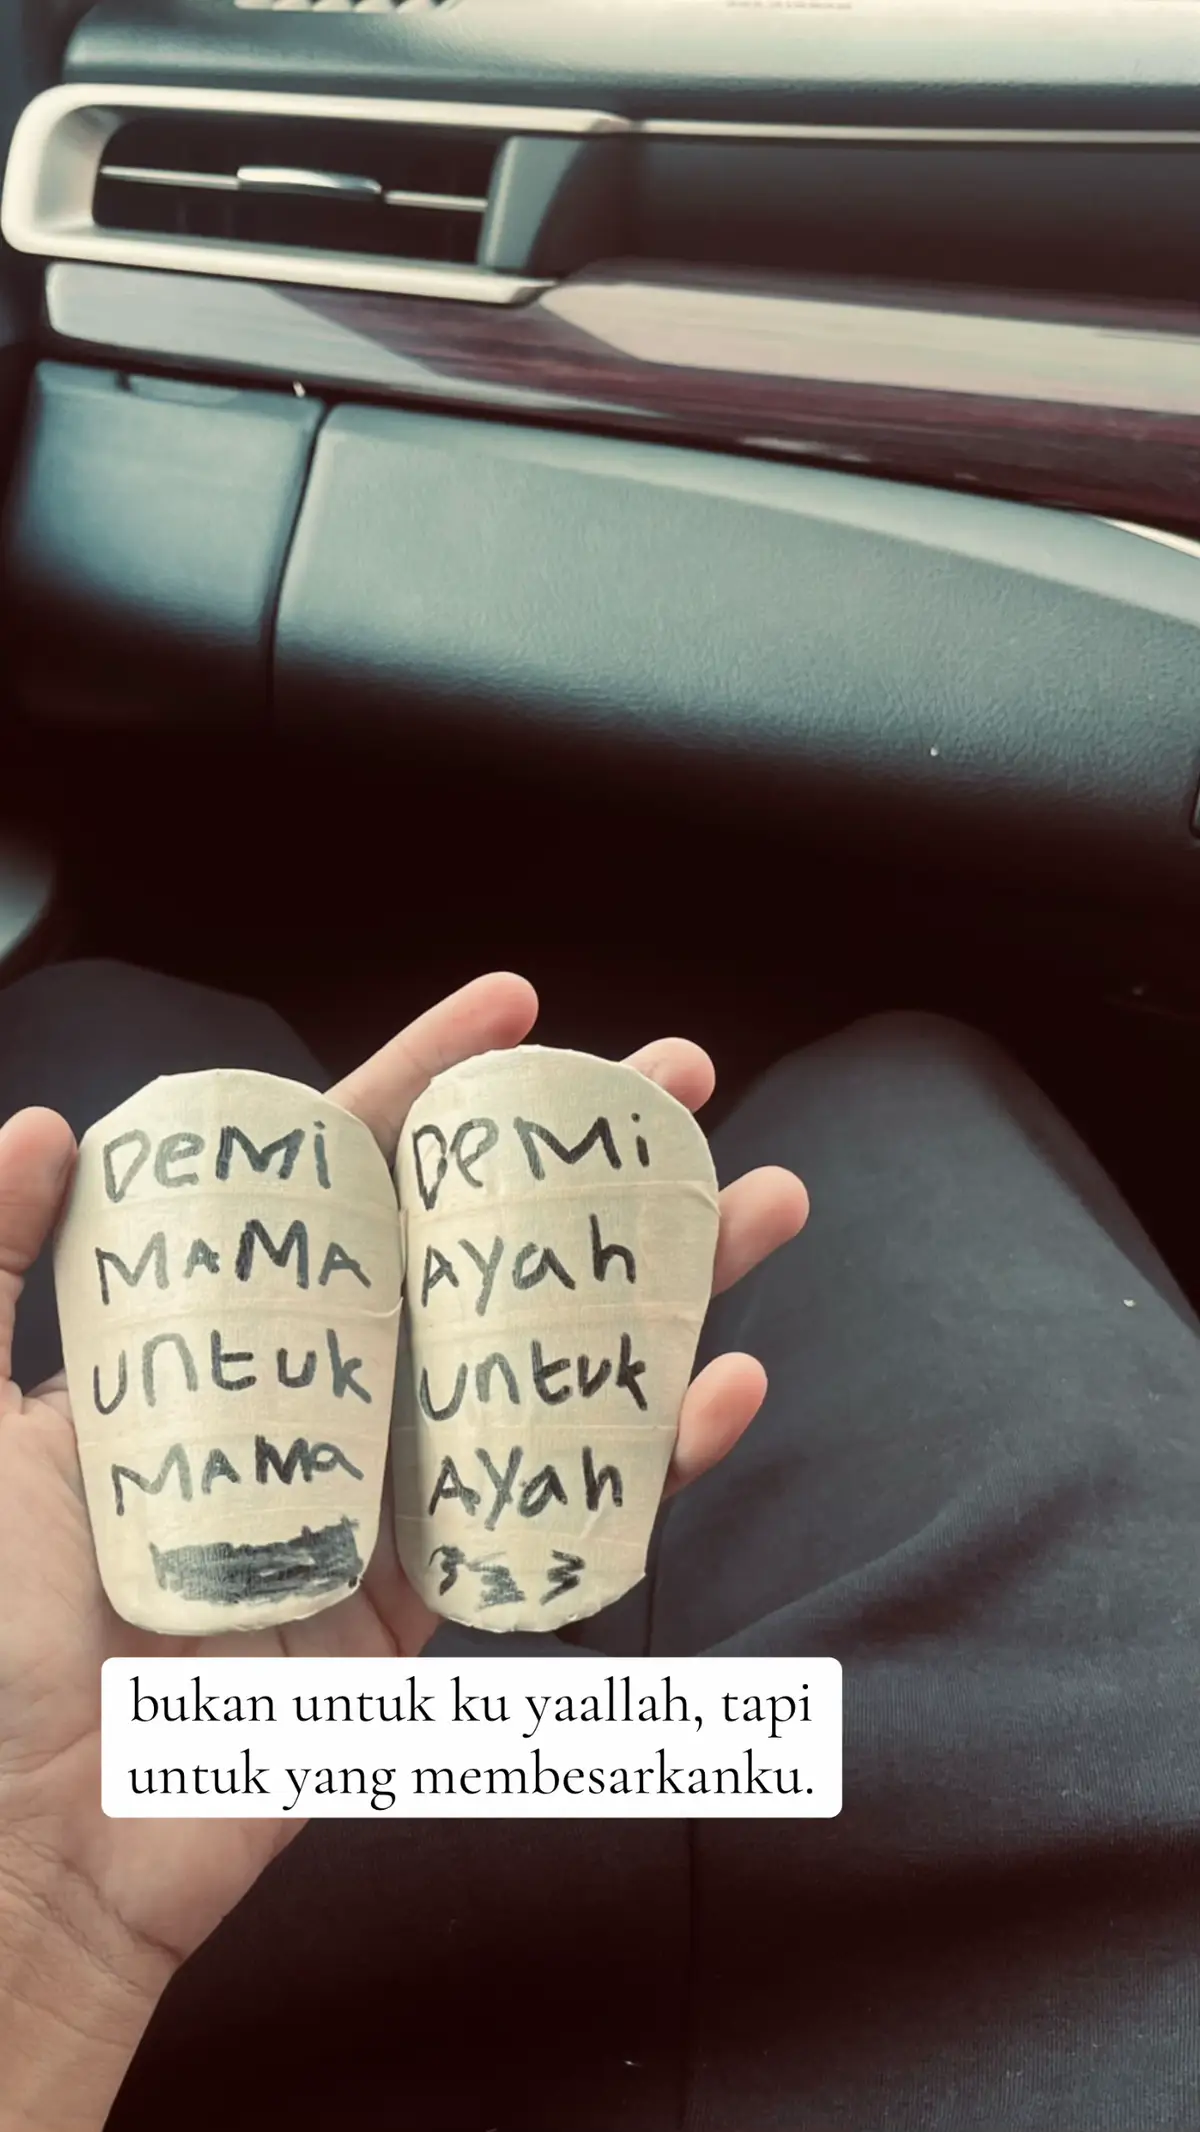 DeMi
MAMA
untuk
MAMa
DeMi
Ayah
untuk
Ayah
bukan untuk ku yaallah, tapi
untuk yang membesarkanku.